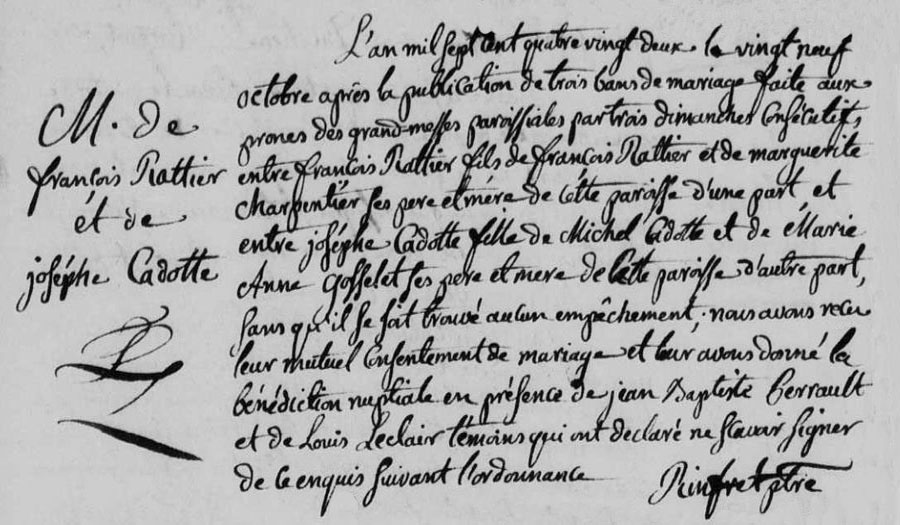 M. de
françois Rattier
et de
joséphe Cadotte
L'an mil sept Cent quatre vingt deux. le vingt neuf
octobre après la publication de trois bans de mariage faite aux
prones des grand-messes paroissiales par trois dimanches Consécutifs,
entre françois Rattier fils de françois Rattier et de marguerite
charpentier ses pere et mére de Cette paroisse d'une part, et
entre joséphe Cadotte fille de Michel Cadotte et de Marie
Anne Gosselet ses pere et mere de Cette paroisse d'autre part,
sans qu'il se soit trouvé aucun empêchement, nous avons recu
leur mutuel Consentement de mariage et leur avons donné la
bénédiction nuptiale en présence de jean Baptiste Perrault
et de Louis Leclair témoins qui ont declaré ne scavoir signer
de ce enquis suivant l'ordonnance
Rinfret ptre